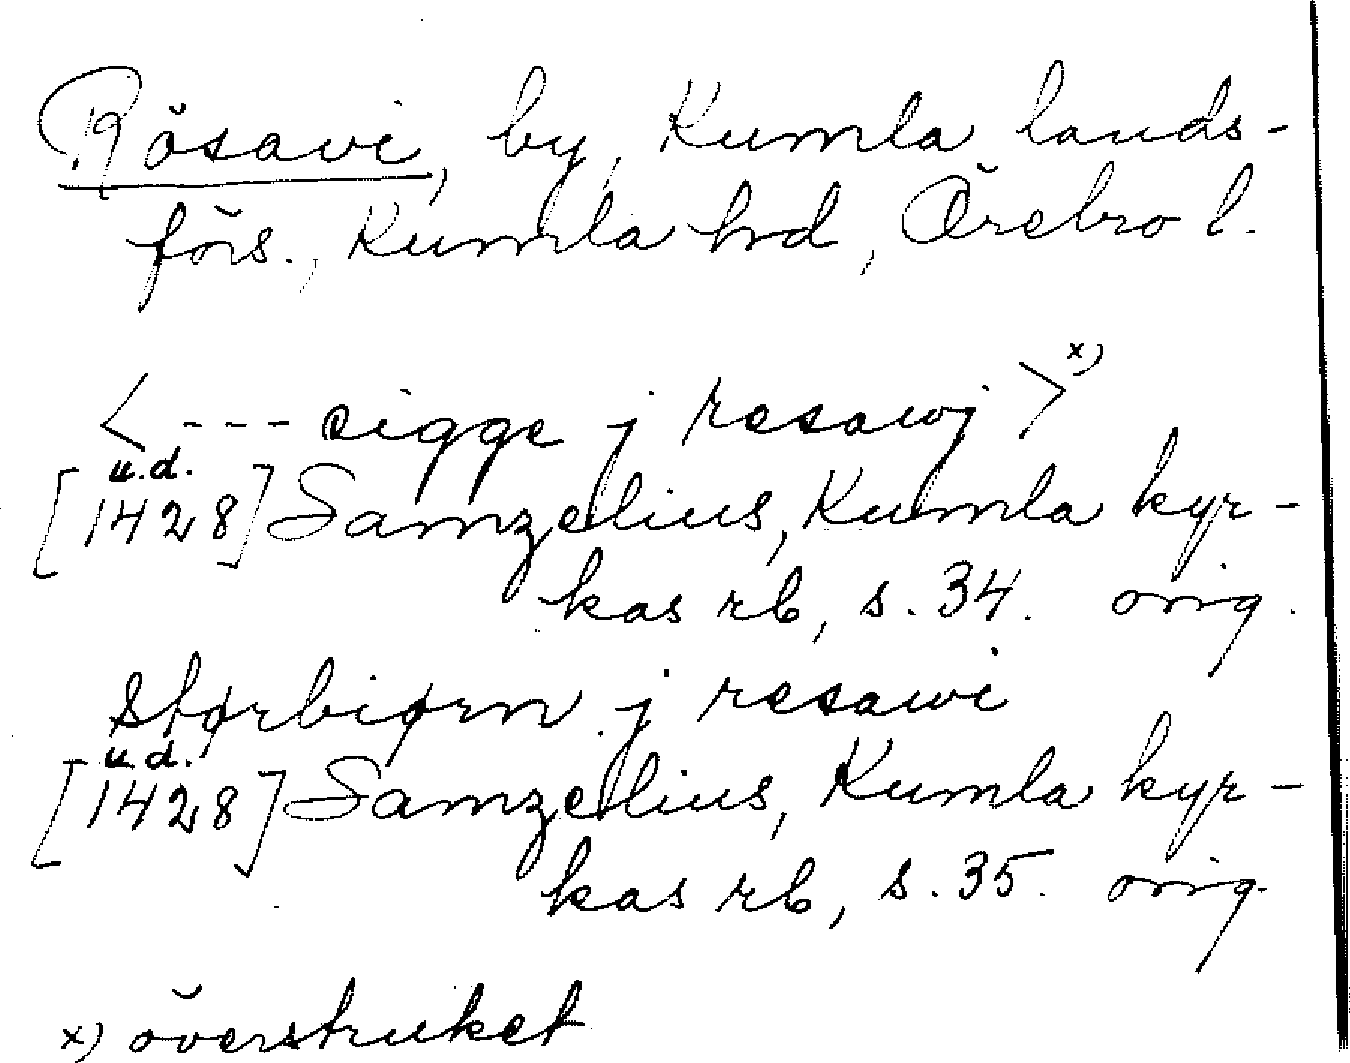 Rösavi, by, Kumla lands-
förs., Kumla hd, Örebro l.
< --- sigge j resawj > x)
[u.d. 1428] Samzelius, Kumla kyr-
kas rb, s. 34. orig.
størbiørn j resawi
[u.d. 1428] Samzelius, Kumla kyr-
kas rb, s. 35. orig.
x) överstruket